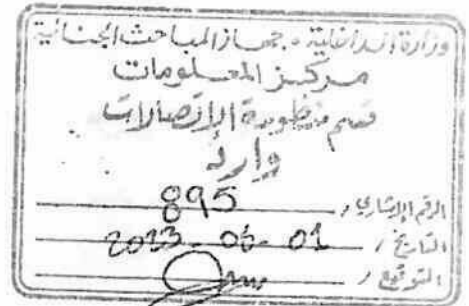 وزارة الداخلية . جهاز المباحث الجنائية
مركز المعلومات
قسم منظومة الإتصالات
وارد
الرقم الإشاري / 895
التاريخ / 01
التوقيع /